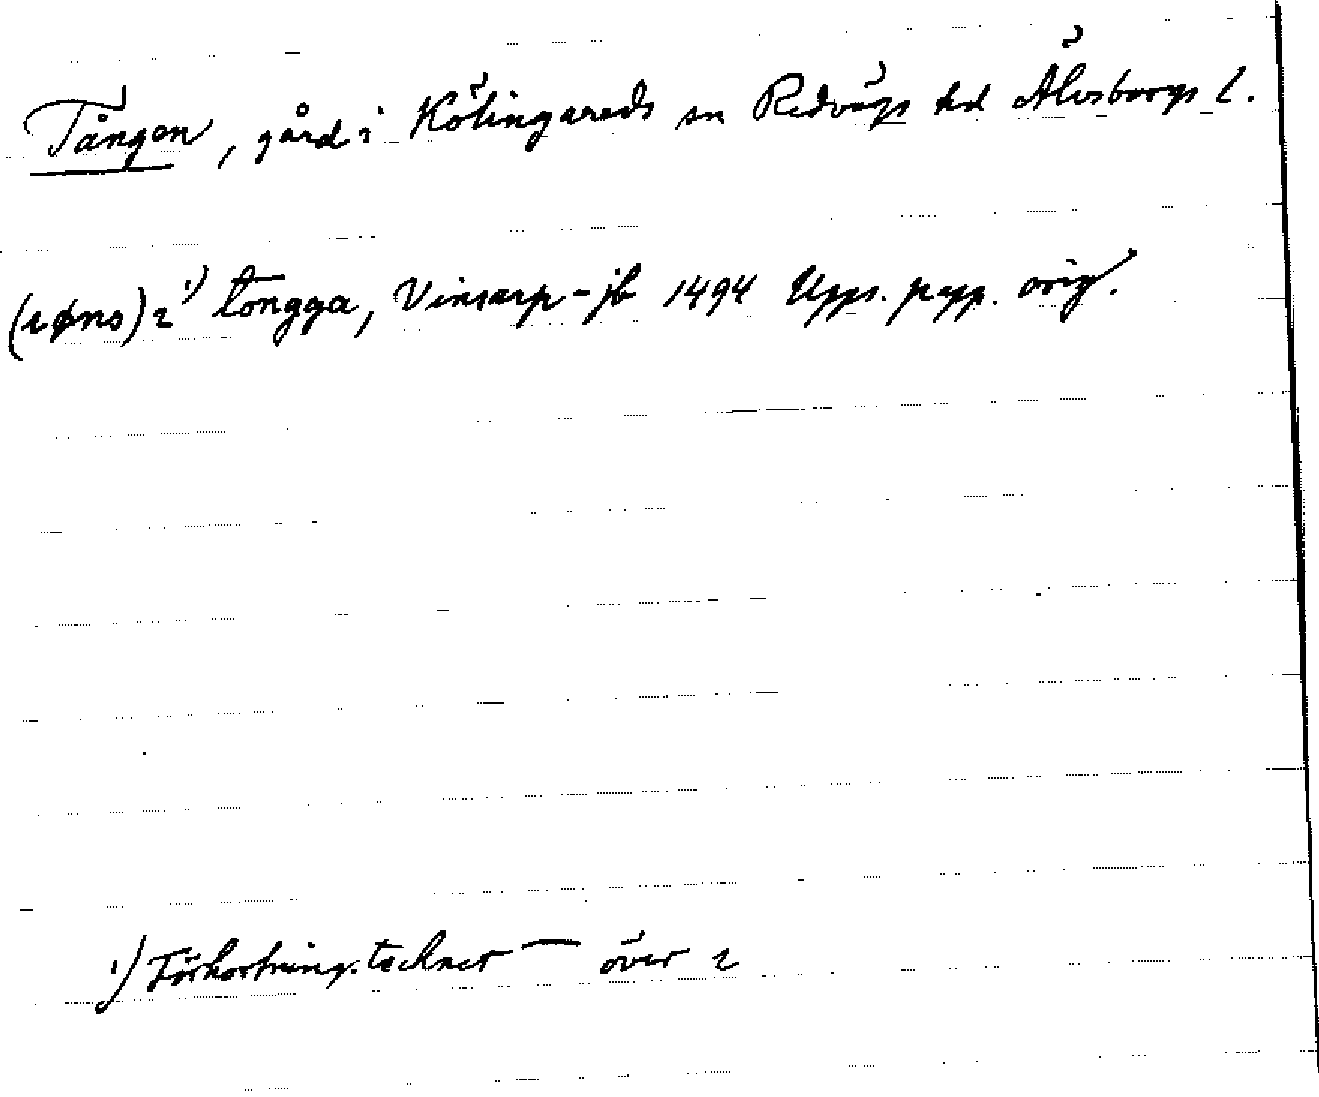 Tången, gård i Kölingareds sn Redvägs hd Älvsborgs l.
(ıøns) 2 ¹) tongga, Vinsarp-jb 1494 Upps. papp. orig.
¹) Förkortningstecknet — över 2